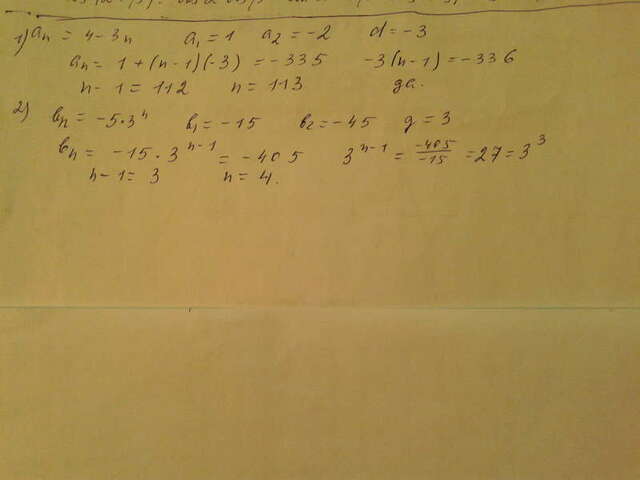 1) aₙ = 4-3n a₁ = 1 a₂ = -2 d = -3
aₙ = 1 + (n-1)(-3) = -335 -3(n-1) = -336
n-1 = 112 n = 113 да.
2) bₙ = -5·3ⁿ b₁ = -15 b₂ = -45 q = 3
bₙ = -15·3ⁿ⁻¹ = -405 3ⁿ⁻¹ = -405/-15 = 27 = 3³
n-1 = 3 n = 4.